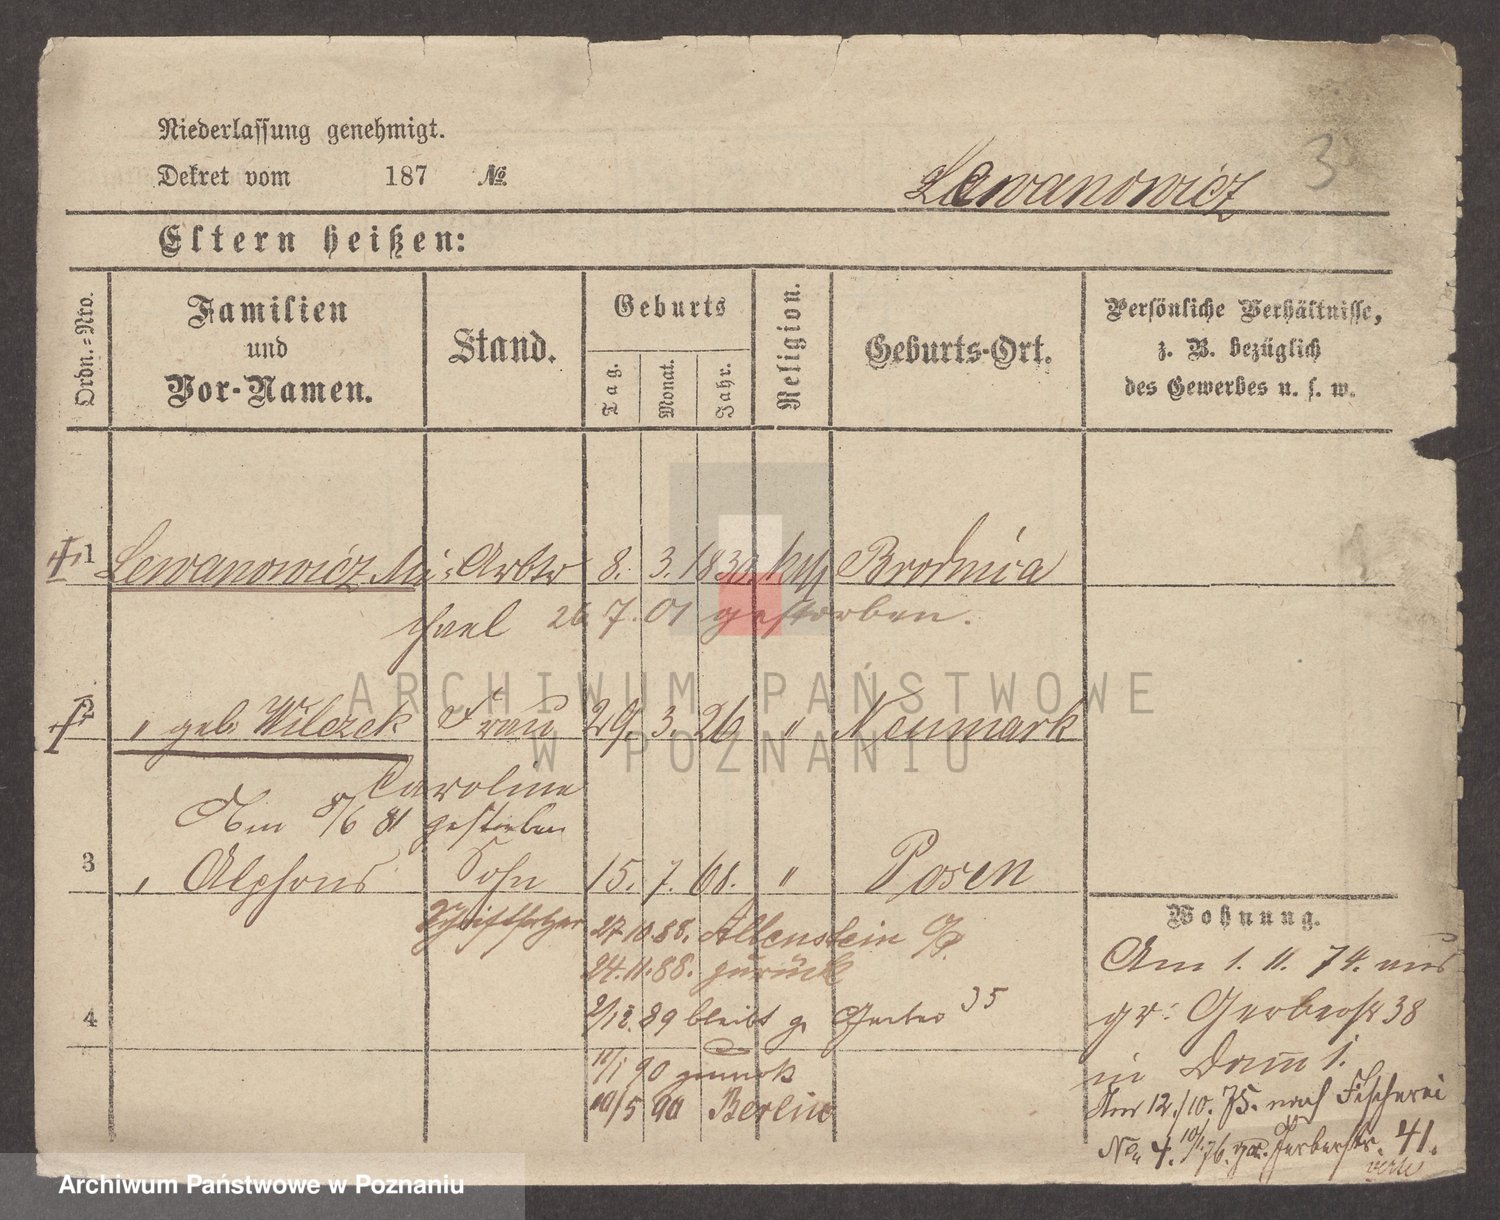 Niederlassung genehmigt.
Dekret vom 187 №
Lewanowicz
3
Eltern heißen:
Ordn.-Nro.
Familien
und
Vor-Namen.
Stand.
Geburts
Tag.
Monat.
Jahr.
Religion.
Geburts-Ort.
Persönliche Verhältnisse,
z. B. bezüglich
des Gewerbes u. s. w.
1 Lewanowicz Mi- Arbtr 8. 3. Brodnica
chael 26. 7. 01 gestorben.
2 " geb Wilczek Frau 29. 3. 26 " Neumark
Caroline
Am 8/6 81 gestorben
3 " Alphons Sohn 15. 7. 68. " Posen
Schriftsetzer 27 10. 88. Allenstein
24. 11. 88. zurück
4
2/12. 89 bleibt g. Gerber 35
11/1 90
10/5 90 Berlin
Wohnung.
Am 1. 11. 74. aus
gr: Gerberstr 38
in Damm 1.
Am 12./10. 75. nach Fischerei
No 4. 10/1. 76. gr. Gerberstr. 41.
ARCHIWUM PAŃSTWOWE
W POZNANIU
Archiwum Państwowe w Poznaniu